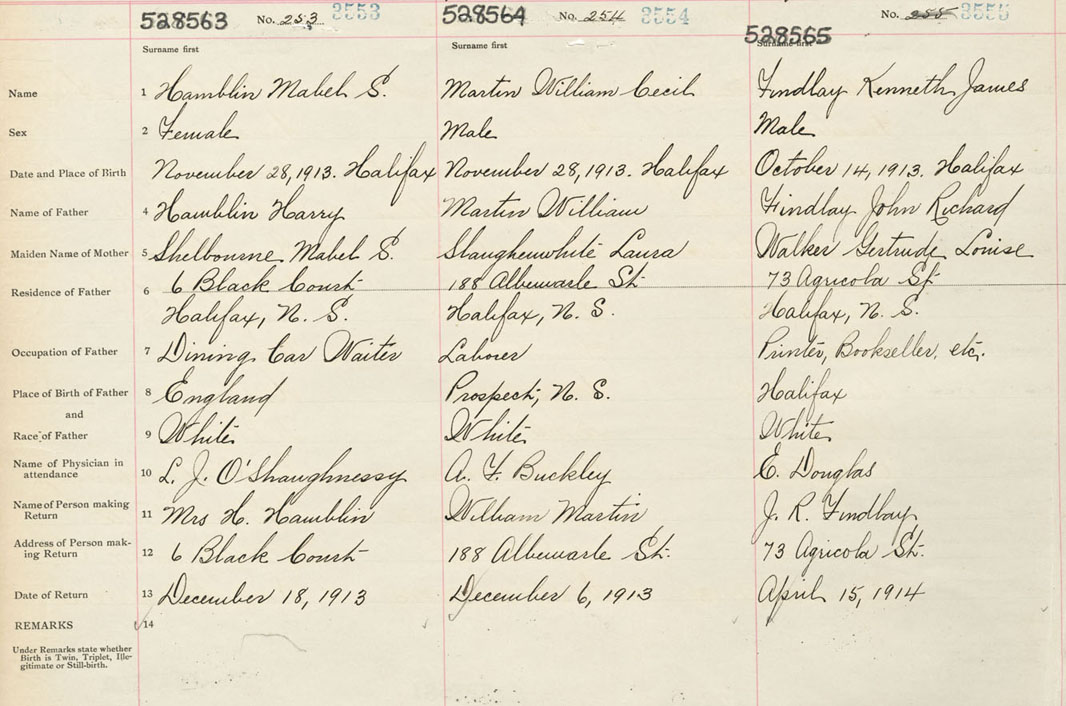 528563 No. 253 3553 528564 No. 254 3554 528565 No. 255 3555
Surname first Surname first Surname first
Name 1 Hamblin Mabel S. Martin William Cecil Findlay Kenneth James
Sex 2 Female Male Male
Date and Place of Birth November 28, 1913. Halifax November 28, 1913. Halifax October 14, 1913. Halifax
Name of Father 4 Hamblin Harry Martin William Findlay John Richard
Maiden Name of Mother 5 Shelbourne Mabel S. Shaughenwhite Laura Walker Gertrude Louise
Residence of Father 6 6 Black Court 188 Albewarle St. 73 Agricola St.
Halifax, N. S. Halifax, N. S. Halifax, N. S.
Occupation of Father 7 Dining Car Waiter Laborer Printer, Bookseller, etc.
Place of Birth of Father 8 England Prospect, N. S. Halifax
and
Race of Father 9 White White White
Name of Physician in
attendance 10 L. J. O'Shaughnessy A. F. Buckley E. Douglas
Name of Person making
Return 11 Mrs H. Hamblin William Martin J. R. Findlay
Address of Person mak-
ing Return 12 6 Black Court 188 Albewarle St. 73 Agricola St.
Date of Return 13 December 18, 1913 December 6, 1913 April 15, 1914
REMARKS 14
Under Remarks state whether
Birth is Twin, Triplet, Ille-
gitimate or Still-birth.